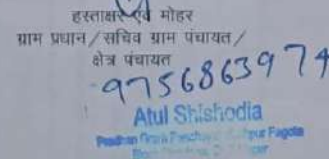 हस्ताक्षर एवं मोहर
ग्राम प्रधान/सचिव ग्राम पंचायत/
क्षेत्र पंचायत
9756863974
Atul Shishodia
Pradhan Gram Panchayat Fagota